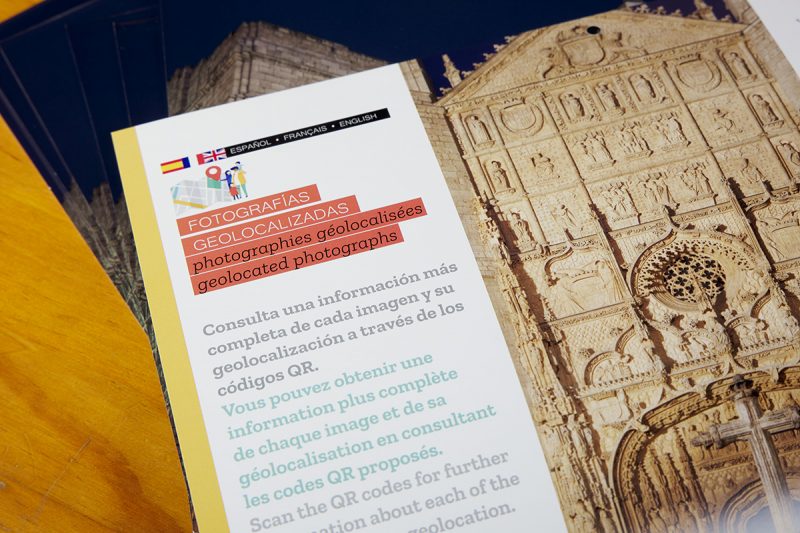 ESPAÑOL • FRANÇAIS • ENGLISH
FOTOGRAFÍAS
GEOLOCALIZADAS
photographies géolocalisées
geolocated photographs
Consulta una información más
completa de cada imagen y su
geolocalización a través de los
códigos QR.
Vous pouvez obtenir une
information plus complète
de chaque image et de sa
géolocalisation en consultant
les codes QR proposés.
Scan the QR codes for further
about each of the
geolocation.